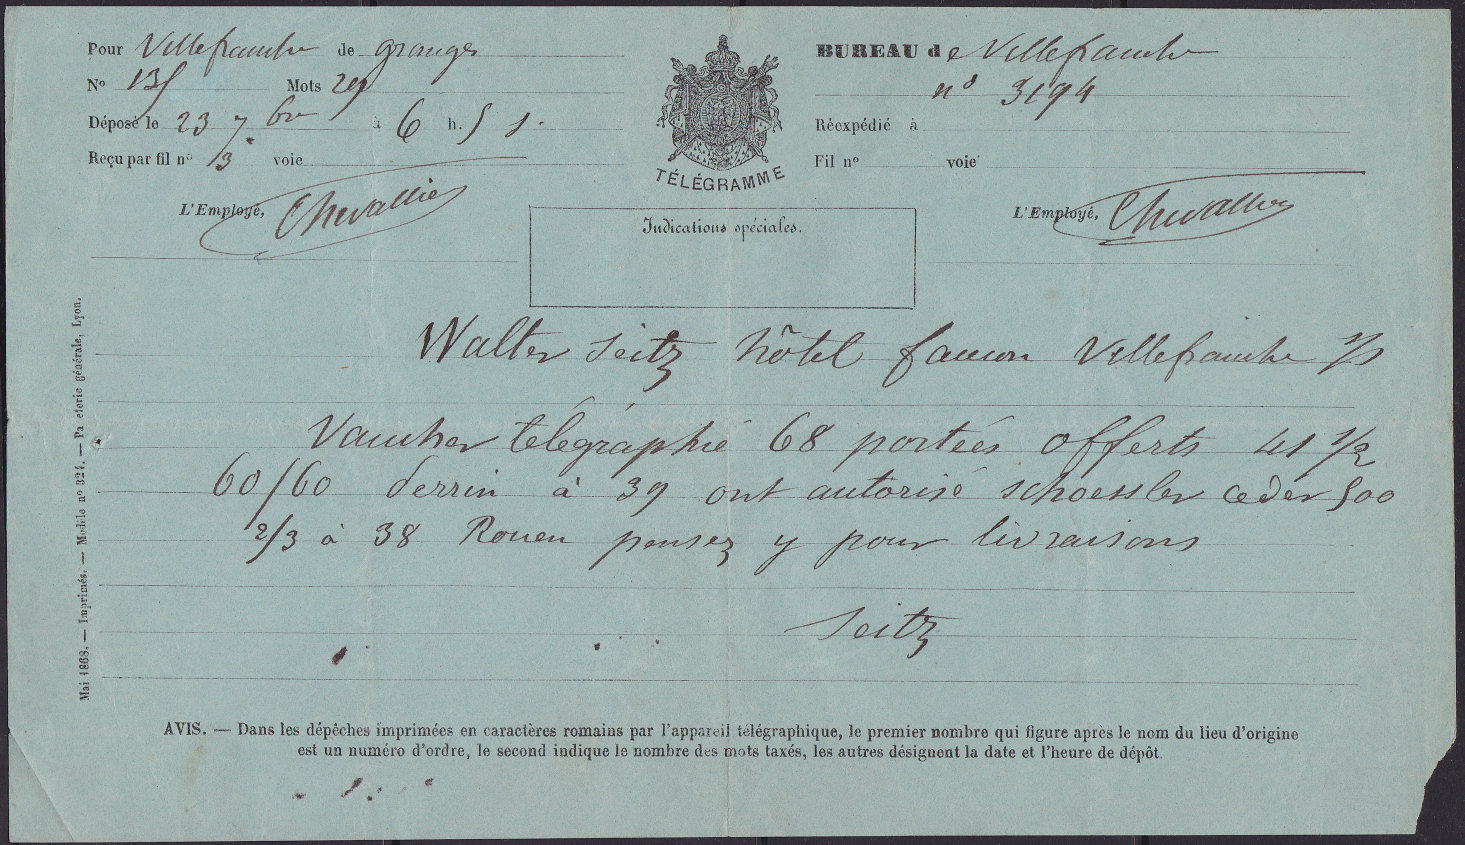 Pour Villefranche de granges
BUREAU de Villefranche
No 135 Mots 29
n° 3194
Déposé le 23 7bre à 6 h. 5 s.
Réexpédié à
Reçu par fil no 3 voie
Fil no voie
TÉLÉGRAMME
L'Employé, Chevallier
L'Employé, Chevallier
Indications spéciales.
Walter Seitz hôtel faucon Villefranche s/s
Vaucher télégraphié 68 portées offerts 41 1/2
60/60 derrin à 39 ont autorisé schoessler ceder 500
2/3 à 38 Rouen pensez y pour livraisons
Seitz
Mai 1868. — Imprimés. — Modèle no 324. — Pa eterie générale, Lyon.
AVIS. — Dans les dépêches imprimées en caractères romains par l'appareil télégraphique, le premier nombre qui figure après le nom du lieu d'origine
est un numéro d'ordre, le second indique le nombre des mots taxés, les autres désignent la date et l'heure de dépôt.